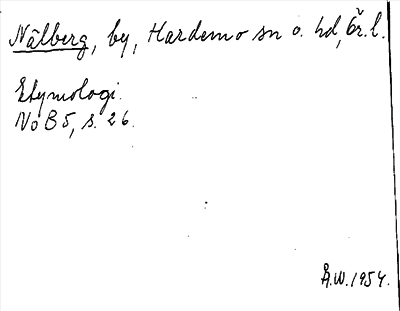 Nålberg, by, Hardemo sn o. hd, Ör. l.
Etymologi.
NoB 5, s. 26.
Å.W. 1954.